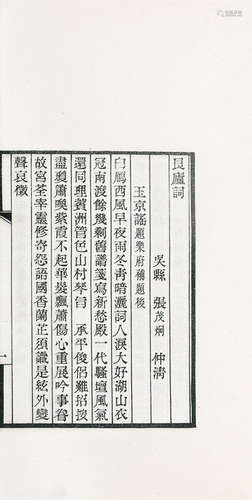 艮廬詞
吳縣 張茂炯 仲清
玉京謠題樂府補題後
白雁西風早夜雨冬青暗灑詞人淚大好湖山衣
冠南渡餘幾剩舊譜箋寫新愁殿一代騷壇風氣
還同理賓洲管色山村琴旨 承平俊侶難招按
盡裏簫喚紫霞不起華堤飄蕭傷心重展吟事眘
故宮荃宰靈修寄怨語國香蘭芷須識是絃外變
聲哀徵